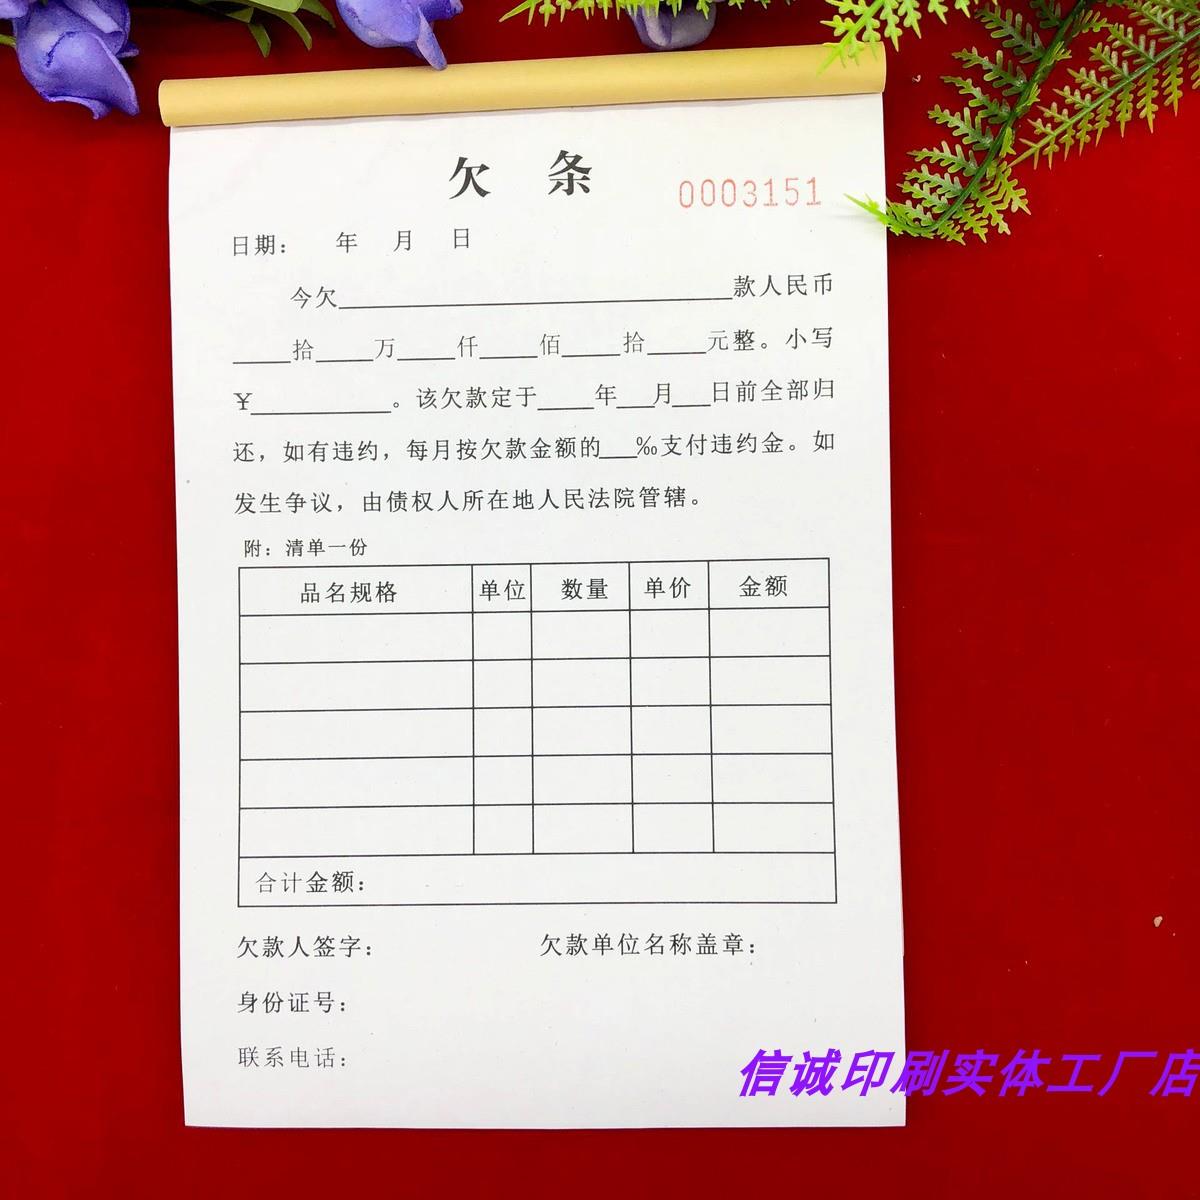 欠 条
0003151
日期： 年 月 日
今欠____________________款人民币
____拾____万____仟____佰____拾____元整。小写
¥__________。该欠款定于____年___月___日前全部归
还，如有违约，每月按欠款金额的___‰支付违约金。如
发生争议，由债权人所在地人民法院管辖。
附：清单一份
品名规格 单位 数量 单价 金额
合计金额：
欠款人签字： 欠款单位名称盖章：
身份证号：
联系电话：
信诚印刷实体工厂店